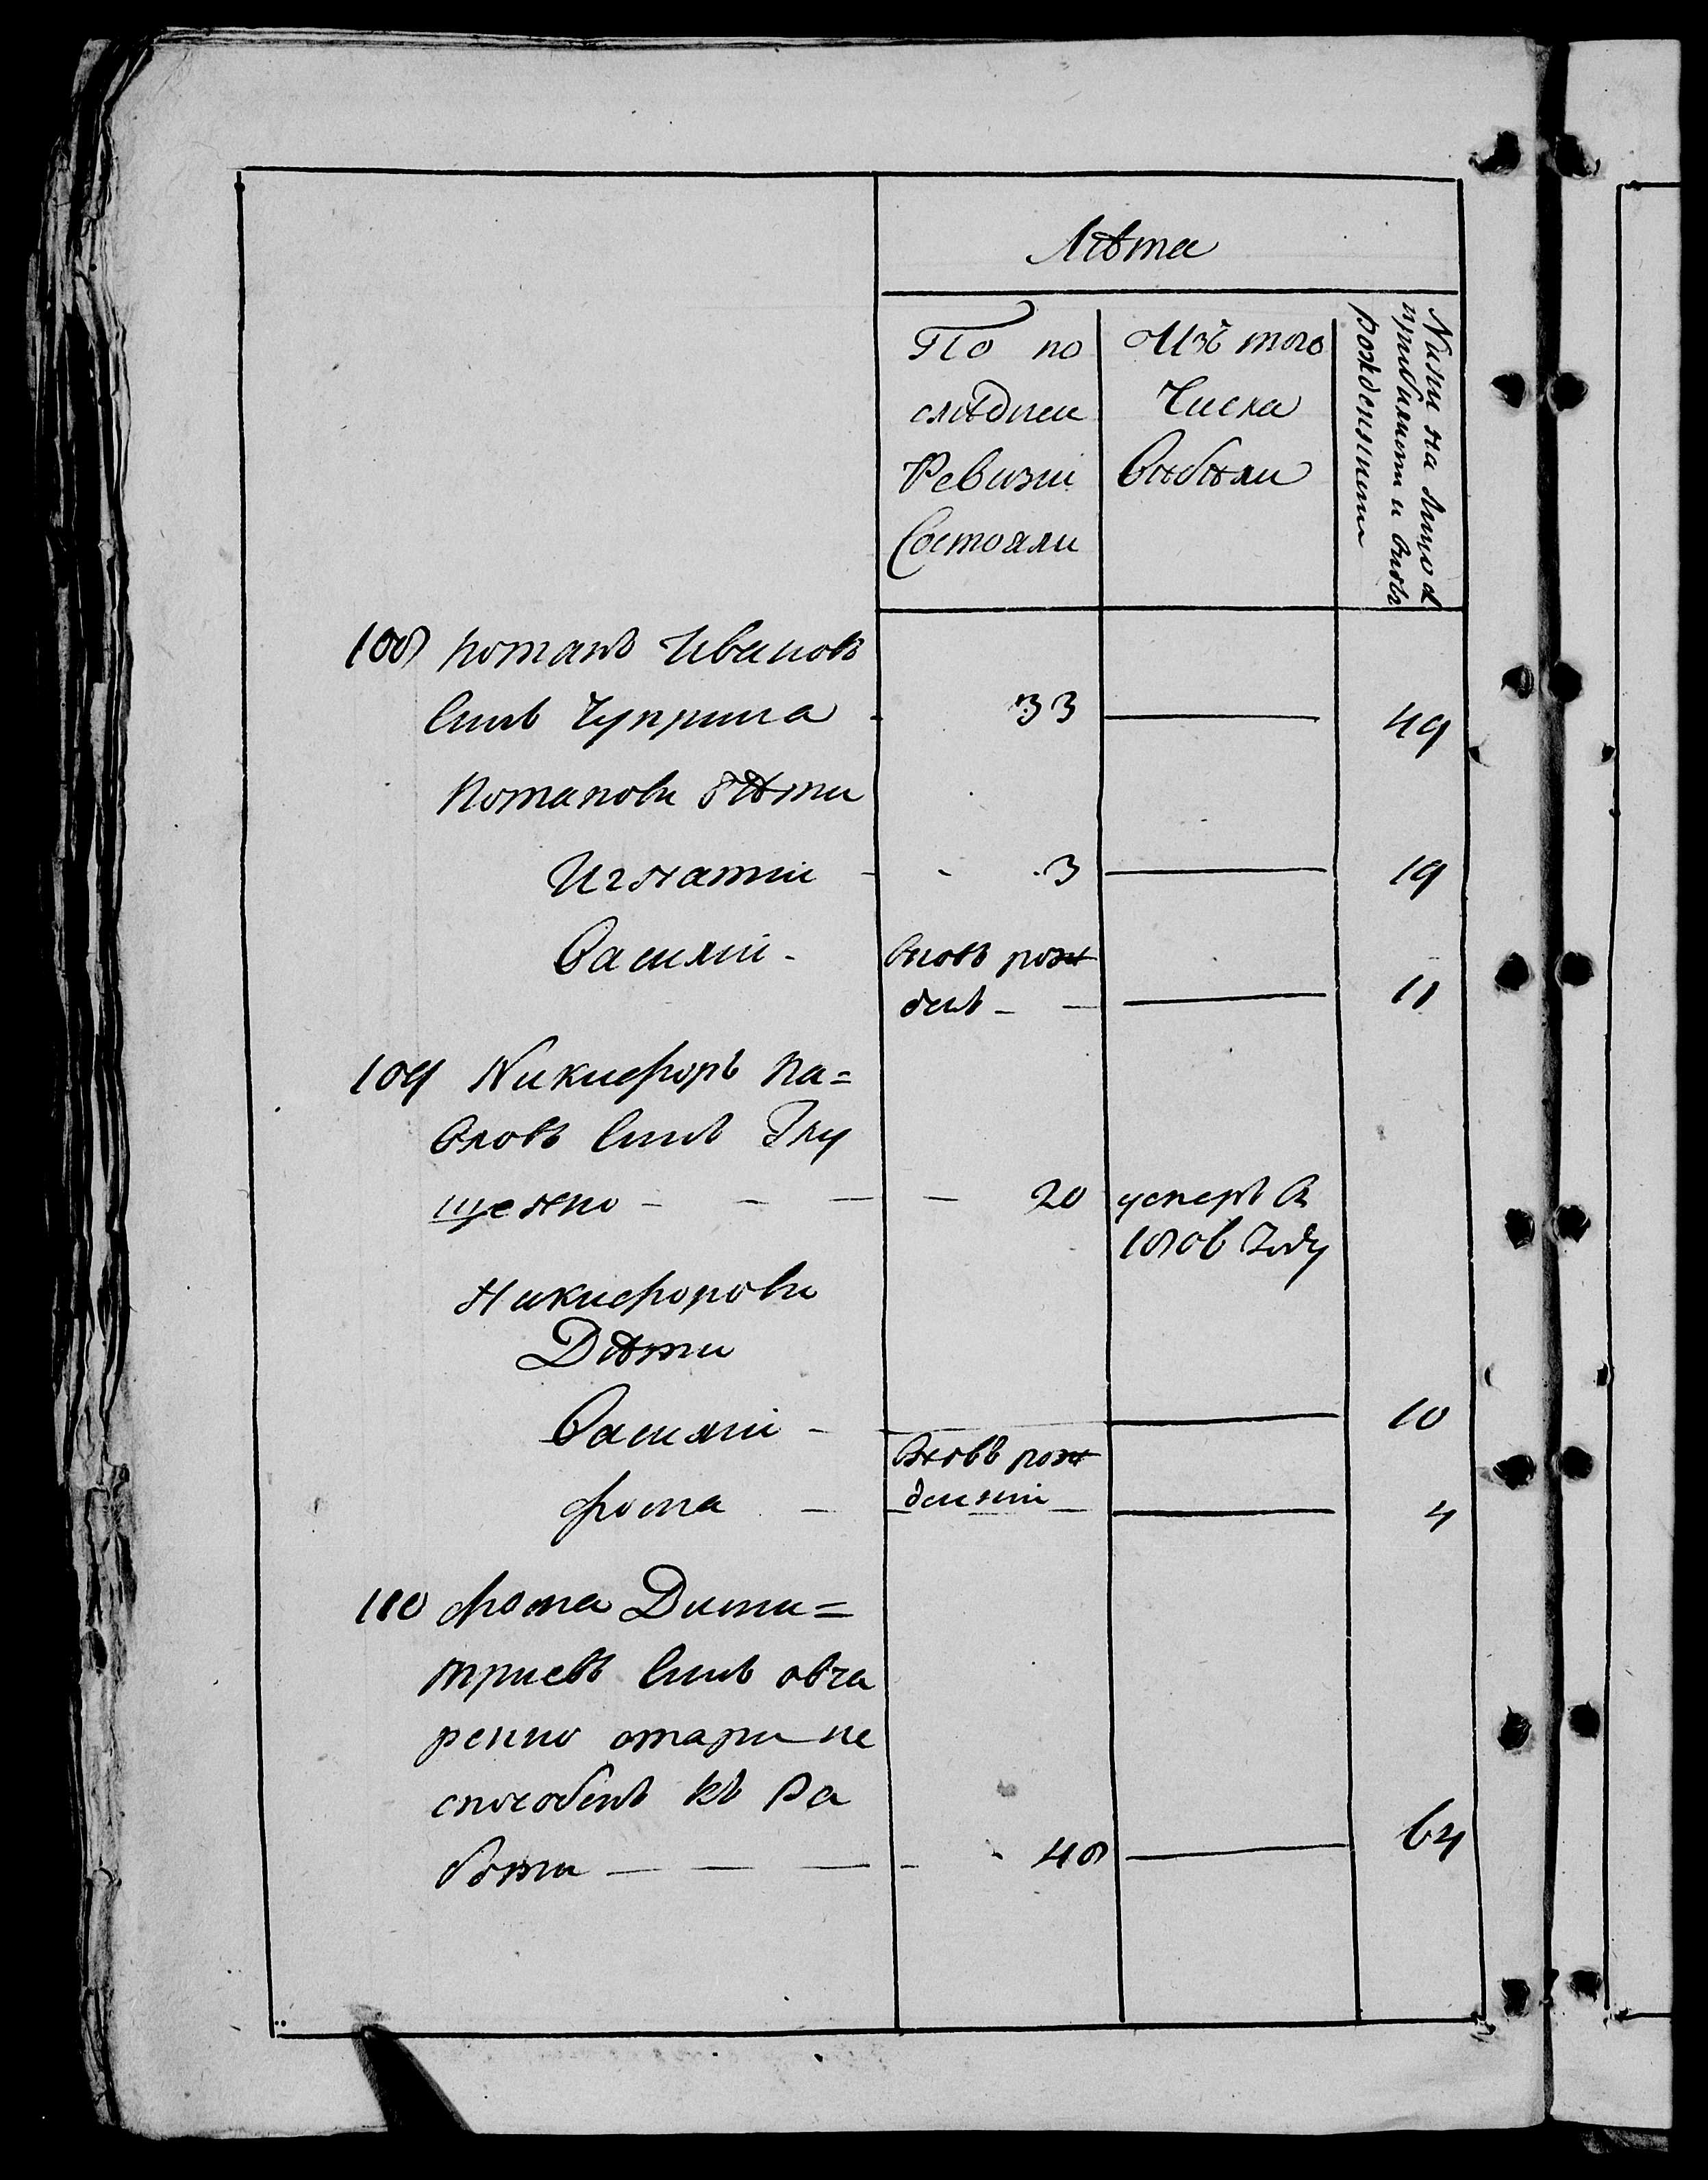 Лѣта
По по
слѣднеи
Ревизіи
Состояли
Изъ того
Числа
выбыли
Нини на лицо съ
прибилими и вновь
рожденними
108 потапъ Ивановъ
синъ Чуприна - 33 — 49
Потапови дѣти
Игнатіи - - 3 — 19
Василіи -
вновь рож
денъ - — 11
109 Никифоръ Па=
вловъ синъ Глу
щенко - - - - 20
умеръ въ
1806 Году
Никифорови
Дѣти
Василіи - — 10
вновь рож
денніи
фома - — 4
110 фома Дими=
тріевъ синъ овча
ренко старъ не
способенъ къ Ра
боти - - - - 48 — 64